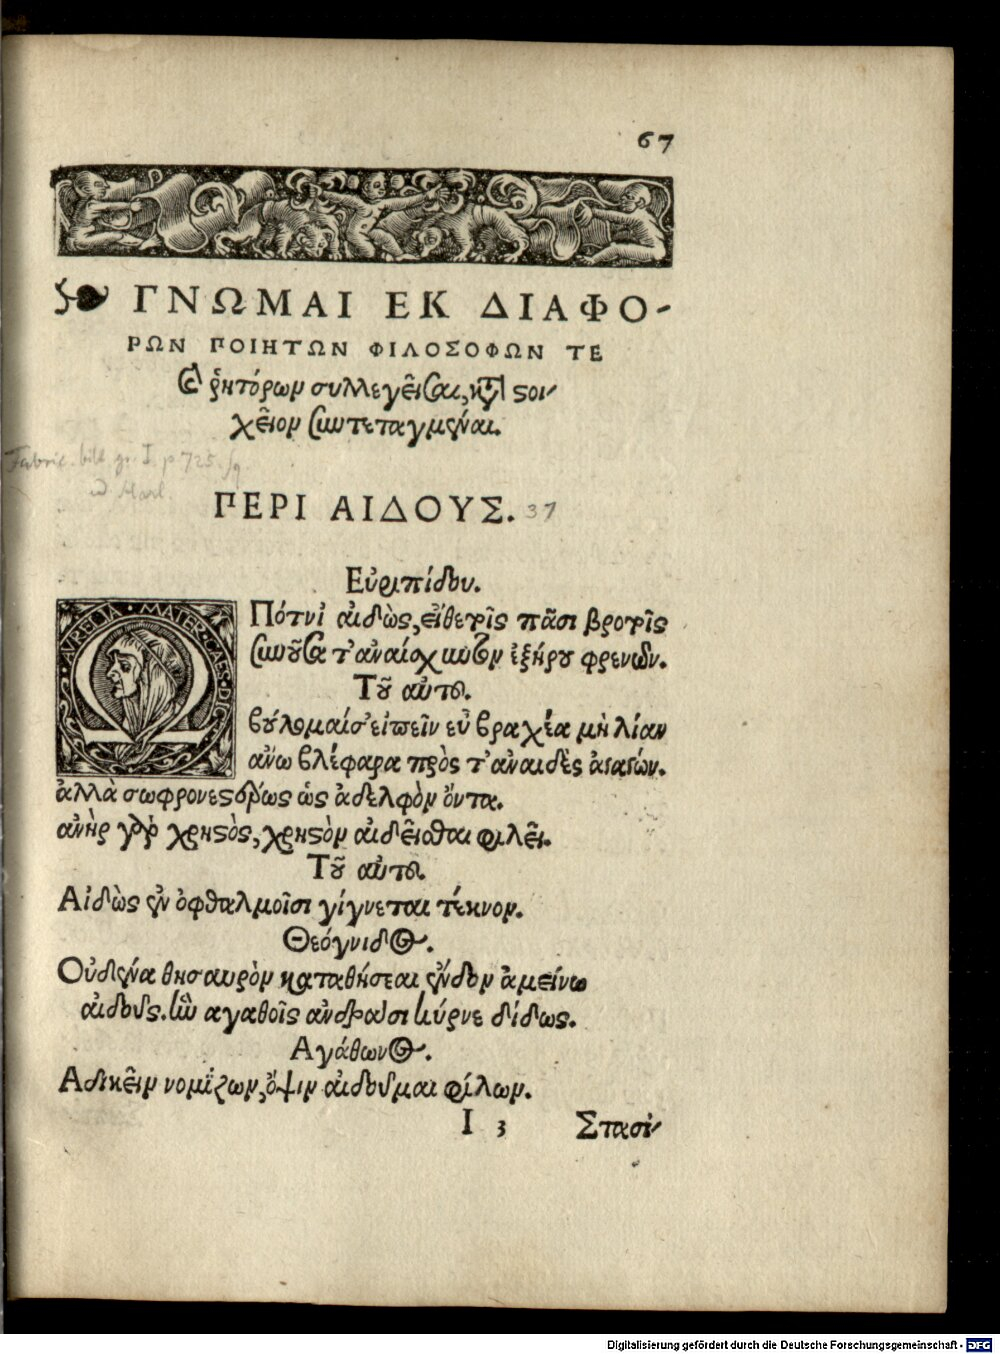 67
ΓΝΩΜΑΙ ΕΚ ΔΙΑΦΟ-
ΡΩΝ ΠΟΙΗΤΩΝ ΦΙΛΟΣΟΦΩΝ ΤΕ
ῥητόρων συλλεγεῖσαι, κατὰ ϛοι-
χεῖον συντεταγμέναι.
Fabric. bibl. gr. I. p 725. sq
ed Harl.
ΠΕΡΙ ΑΙΔΟΥΣ. 37
Εὐριπίδου.
AVRECIA MATER
Πότνι αἰδὼς, εἴθε τοῖς πᾶσι βροτοῖς
συνοῦσα τ' ἀναίσχυντον ἐξήρου φρενῶν.
Τοῦ αὐτοῦ.
βούλομαί σ' εἰπεῖν εὖ βραχέα μὴ λίαν
ἄνω βλέφαρα πρὸς τ' ἀναιδὲς ἀγαγών.
ἀλλὰ σωφρονεϛέρως ὡς ἀδελφὸν ὄντα.
ἀνὴρ γὰρ χρηϛὸς, χρηϛὸν αἰδεῖσθαι φιλεῖ.
Τοῦ αὐτοῦ.
Αἰδὼς ἐν ὀφθαλμοῖσι γίγνεται τέκνον.
Θεόγνιδος.
Οὐδένα θησαυρὸν καταθήσεαι ἔνδον ἀμείνω
αἰδοῦς. ἣν ἀγαθοῖς ἀνδράσι κύρνε δίδως.
Αγάθωνος.
Αδικεῖν νομίζων, ὄψιν αἰδοῦμαι φίλων.
I 3 Στασί-
Digitalisierung gefördert durch die Deutsche Forschungsgemeinschaft - DFG